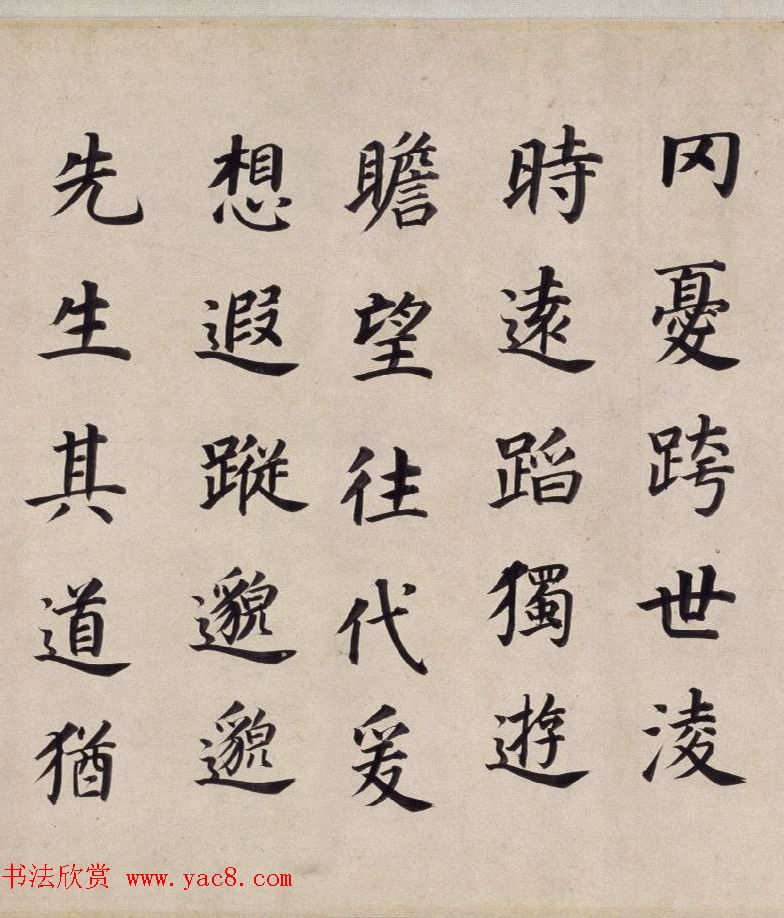 罔憂跨世淩
時遠蹈獨遊
瞻望往代爰
想遐蹤邈邈
先生其道猶
书法欣赏 www.yac8.com